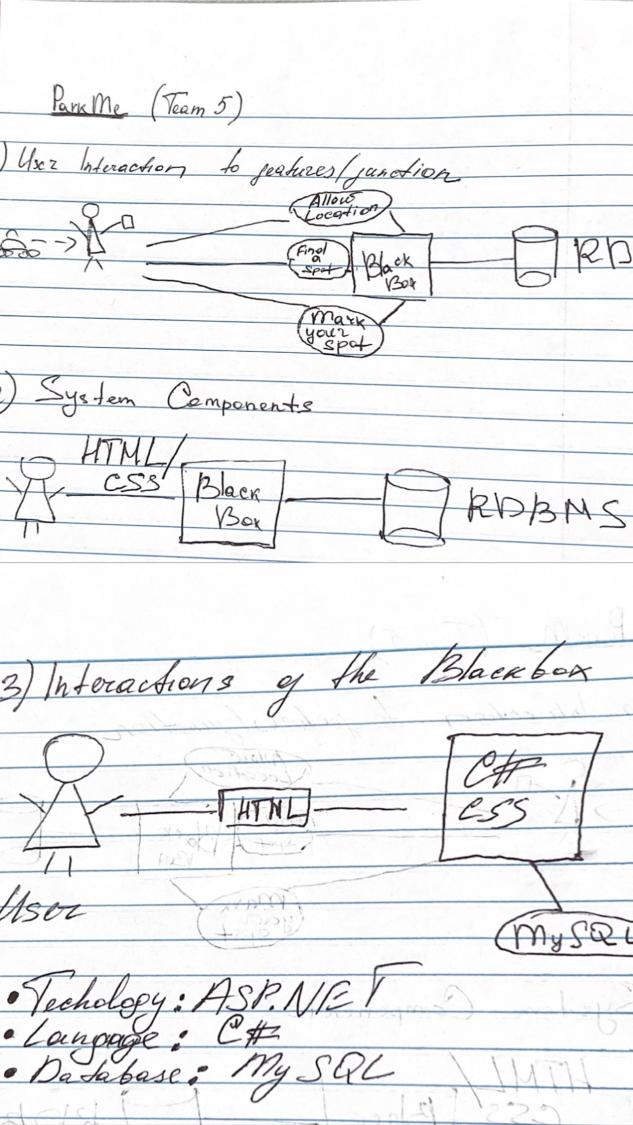 ParkMe (Team 5)
) User Interaction to features/function
Allow
Location
Find
a
spot
Black
Box
RD
Mark
your
spot
) System Components
HTML/
CSS
Black
Box
RDBMS
3) Interactions of the Blackbox
HTML
C#
CSS
User
MySQL
• Techology: ASP.NET
• Langage: C#
• Database: MySQL